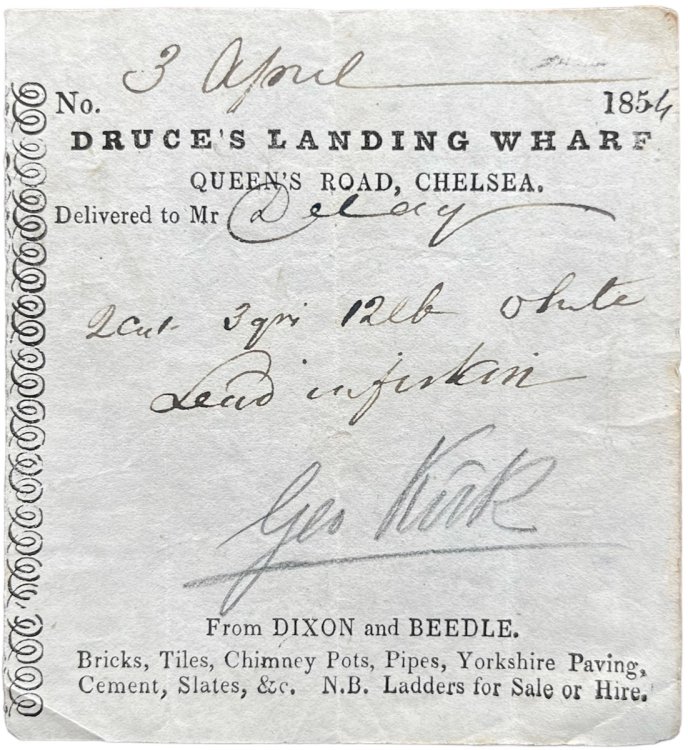 3 April
No. 1854
DRUCE'S LANDING WHARF
QUEEN'S ROAD, CHELSEA.
Delivered to Mr Delay
2 Cwt 3 qrs 12 lb White
Lead in firkin
Geo Kirk
From DIXON and BEEDLE.
Bricks, Tiles, Chimney Pots, Pipes, Yorkshire Paving,
Cement, Slates, &c. N.B. Ladders for Sale or Hire.